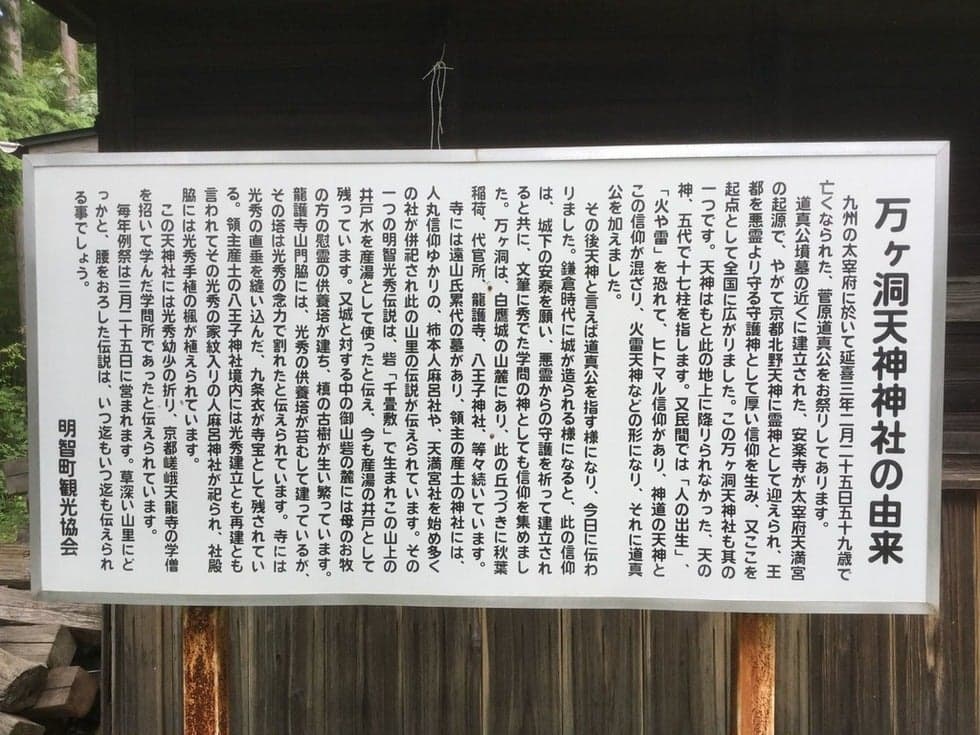 万ヶ洞天神神社の由来
九州の太宰府に於いて延喜三年二月二十五日五十九歳で
亡くなられた、菅原道真公をお祭りしてあります。
道真公墳墓の近くに建立された、安楽寺が太宰府天満宮
の起源で、やがて京都北野天神に霊神として迎えられ、王
都を悪霊より守る守護神として厚い信仰を生み、又ここを
起点として全国に広がりました。この万ヶ洞天神神社も其の
一つです。天神はもと此の地上に降りられなかった、天の
神、五代で十七柱を指します。又民間では「人の出生」、
「火や雷」を恐れて、ヒトマル信仰があり、神道の天神と
この信仰が混ざり、火雷天神などの形になり、それに道真
公を加えました。
その後天神と言えば道真公を指す様になり、今日に伝わ
りました。鎌倉時代に城が造られる様になると、此の信仰
は、城下の安泰を願い、悪霊からの守護を祈って建立され
ると共に、文筆に秀でた学問の神としても信仰を集めまし
た。万ヶ洞は、白鷹城の山麓にあり、此の丘つづきに秋葉
稲荷、代官所、龍護寺、八王子神社、等々続いています。
寺には遠山氏累代の墓があり、領主の産土の神社には、
人丸信仰ゆかりの、柿本人麻呂社や、天満宮社を始め多く
の社が併記され此の山里の伝説が伝えられています。その
一つの明智光秀伝説は、砦「千畳敷」で生まれこの山上の
井戸水を産湯として使ったと伝え、今も産湯の井戸として
残っています。又城と対する中の御山砦の麓には母のお牧
の方の慰霊の供養塔が建ち、槙の古樹が生い繁っています。
龍護寺山門脇には、光秀の供養塔が苔むして建っているが、
その塔は光秀の念力で割れたと伝えられています。寺には
光秀の直垂を縫い込んだ、九条衣が寺宝として残されてい
る。領主産土の八王子神社境内には光秀建立とも再建とも
言われてその光秀の家紋入りの人麻呂神社が祀られ、社殿
脇には光秀手植の楓が植えられています。
この天神神社には光秀幼少の折り、京都嵯峨天龍寺の学僧
を招いて学んだ学問所であったと伝えられています。
毎年例祭は三月二十五日に営まれます。草深い山里にど
っかと、腰をおろした伝説は、いつ迄もいつ迄も伝えられ
る事でしょう。
明智町観光協会